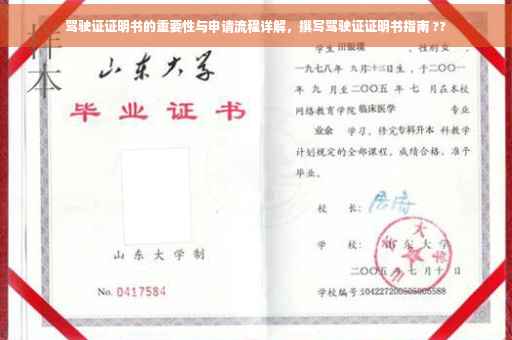 驾驶证证明书的重要性与申请流程详解，撰写驾驶证证明书指南??
样本
山东大学
毕业证书
山东大学制
No. 0417584
学生
一九七八年 九月十三日生，于二〇〇一
年 九 月至二〇〇五 年 七 月在本校
网络教育学院 临床医学 专业
业余 学习，修完专科升本科教学
计划规定的全部课程，成绩合格，准予
毕业。
校 长：
学 校：山东大学
二〇〇五 年 七 月 十 日
学校编号：